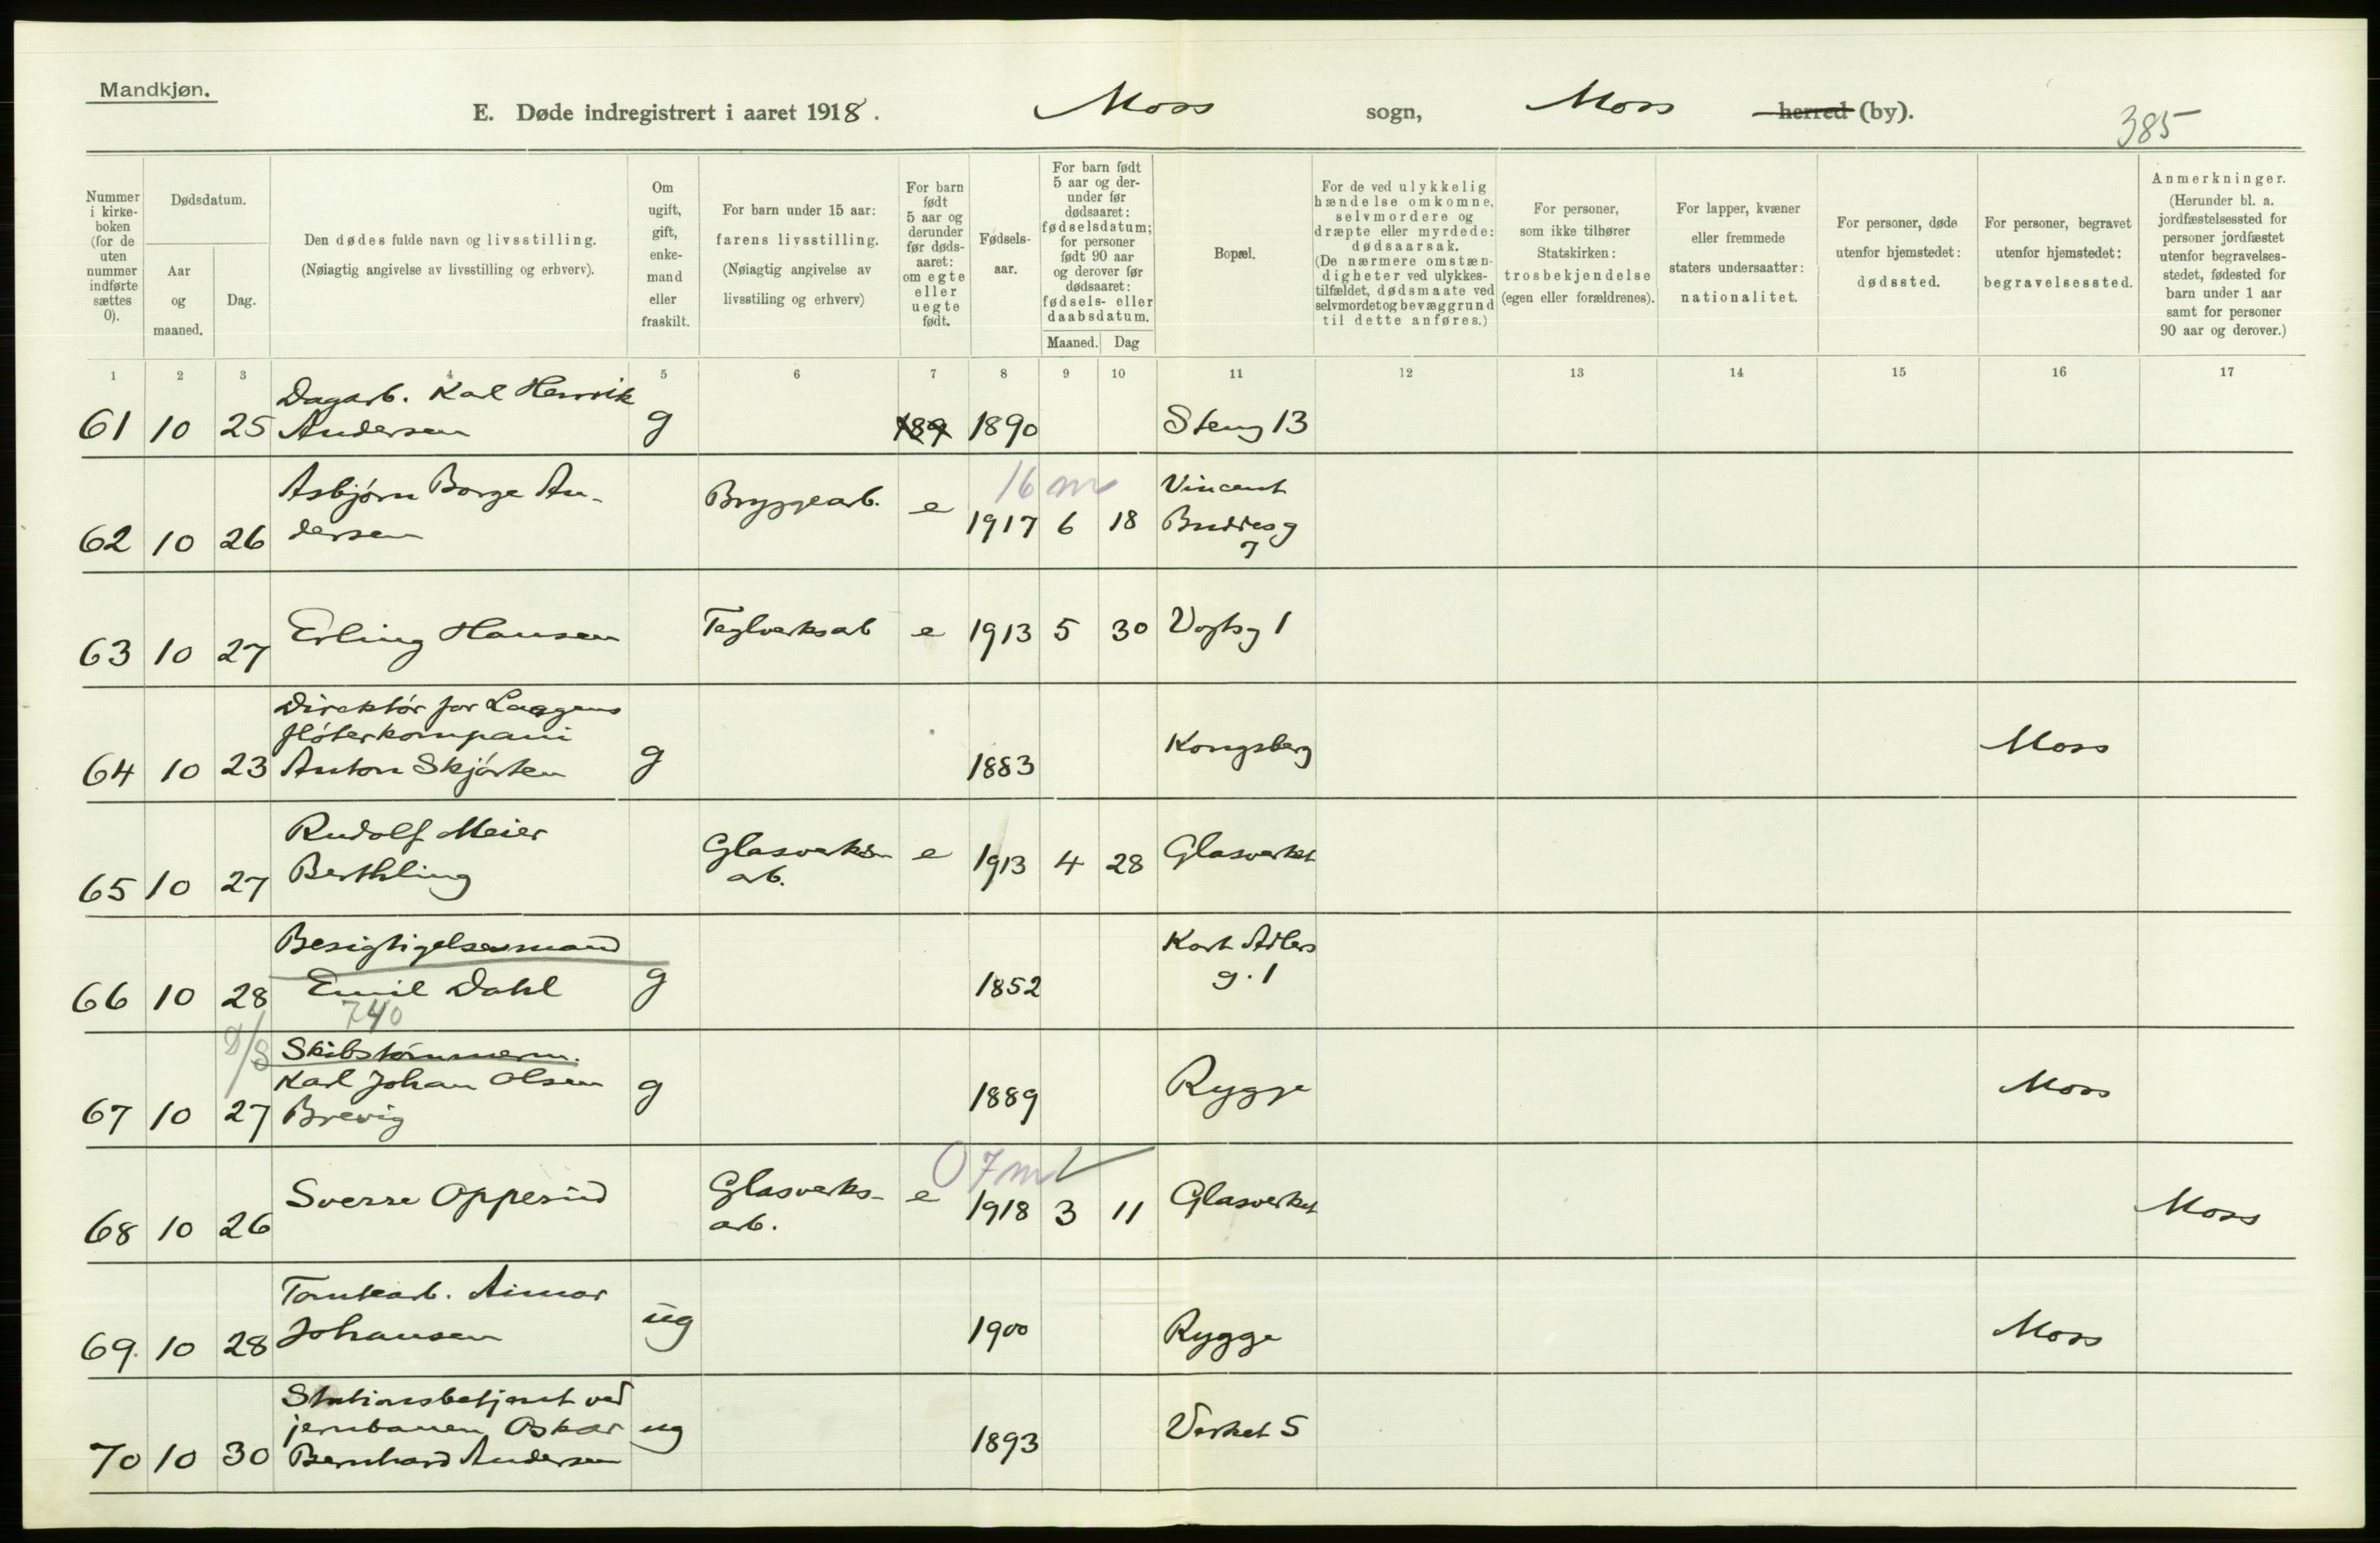 Mandkjøn.
E. Døde indregistrert i aaret 1918. Moss sogn, Moss herred (by).
385
Nummer i kirke-boken (for de uten nummer indførte sættes 0).
Dødsdatum.
Aar og maaned.
Dag.
Den dødes fulde navn og livsstilling.
(Nøiagtig angivelse av livsstilling og erhverv).
Om ugift, gift, enke-mand eller fraskilt.
For barn under 15 aar:
farens livsstilling.
(Nøiagtig angivelse av
livsstiling og erhverv)
For barn født 5 aar og derunder før døds-aaret: om egte eller uegte født.
Fødsels-aar.
For barn født 5 aar og der-under før dødsaaret: fødselsdatum; for personer født 90 aar og derover før dødsaaret: fødsels- eller daabsdatum.
Maaned. Dag
Bopæl.
For de ved ulykkelig hændelse omkomne, selvmordere og dræpte eller myrdede: dødsaarsak.
(De nærmere omstæn-digheter ved ulykkes-tilfældet, dødsmaate ved selvmordet og bevæggrund til dette anføres.)
For personer, som ikke tilhører Statskirken: trosbekjendelse (egen eller forældrenes).
For lapper, kvæner eller fremmede staters undersaatter: nationalitet.
For personer, døde utenfor hjemstedet: dødssted.
For personer, begravet utenfor hjemstedet: begravelsessted.
Anmerkninger.
(Herunder bl. a. jordfæstelsessted for personer jordfæstet utenfor begravelses-stedet, fødested for barn under 1 aar samt for personer 90 aar og derover.)
1 2 3 4 5 6 7 8 9 10 11 12 13 14 15 16 17
Dagarb. Karl Henrik
61 10 25 Andersen g 189 1890 Steng 13
Asbjørn Borge An-
dersen
62 10 26 Bryggearb. e 16 m 1917 6 18 Vincent
Buddesg
7
63 10 27 Erling Hansen Teglverksarb e 1913 5 30 Vogtsg 1
Direktør for Laagens
fløterkompani
64 10 23 Anton Skjørten g 1883 Kongsberg Moss
Rudolf Meier
65 10 27 Berthling Glasverks-
arb. e 1913 4 28 Glasverket
Besigtigelsesmand
66 10 28 Emil Dahl g 1852 Kort Adlers
g. 1
740
D/S Skibstømmerm.
Karl Johan Olsen
67 10 27 Brevig g 1889 Rygge Moss
0 7 m
68 10 26 Sverre Opperud Glasverks-
arb. e 1918 3 11 Glasverket Moss
Tomtearb. Aimar
69. 10 28 Johansen ug 1900 Rygge Moss
Stationsbetjent ved
jernbanen Oskar
70 10 30 Bernhard Andersen ug 1893 Verket 5